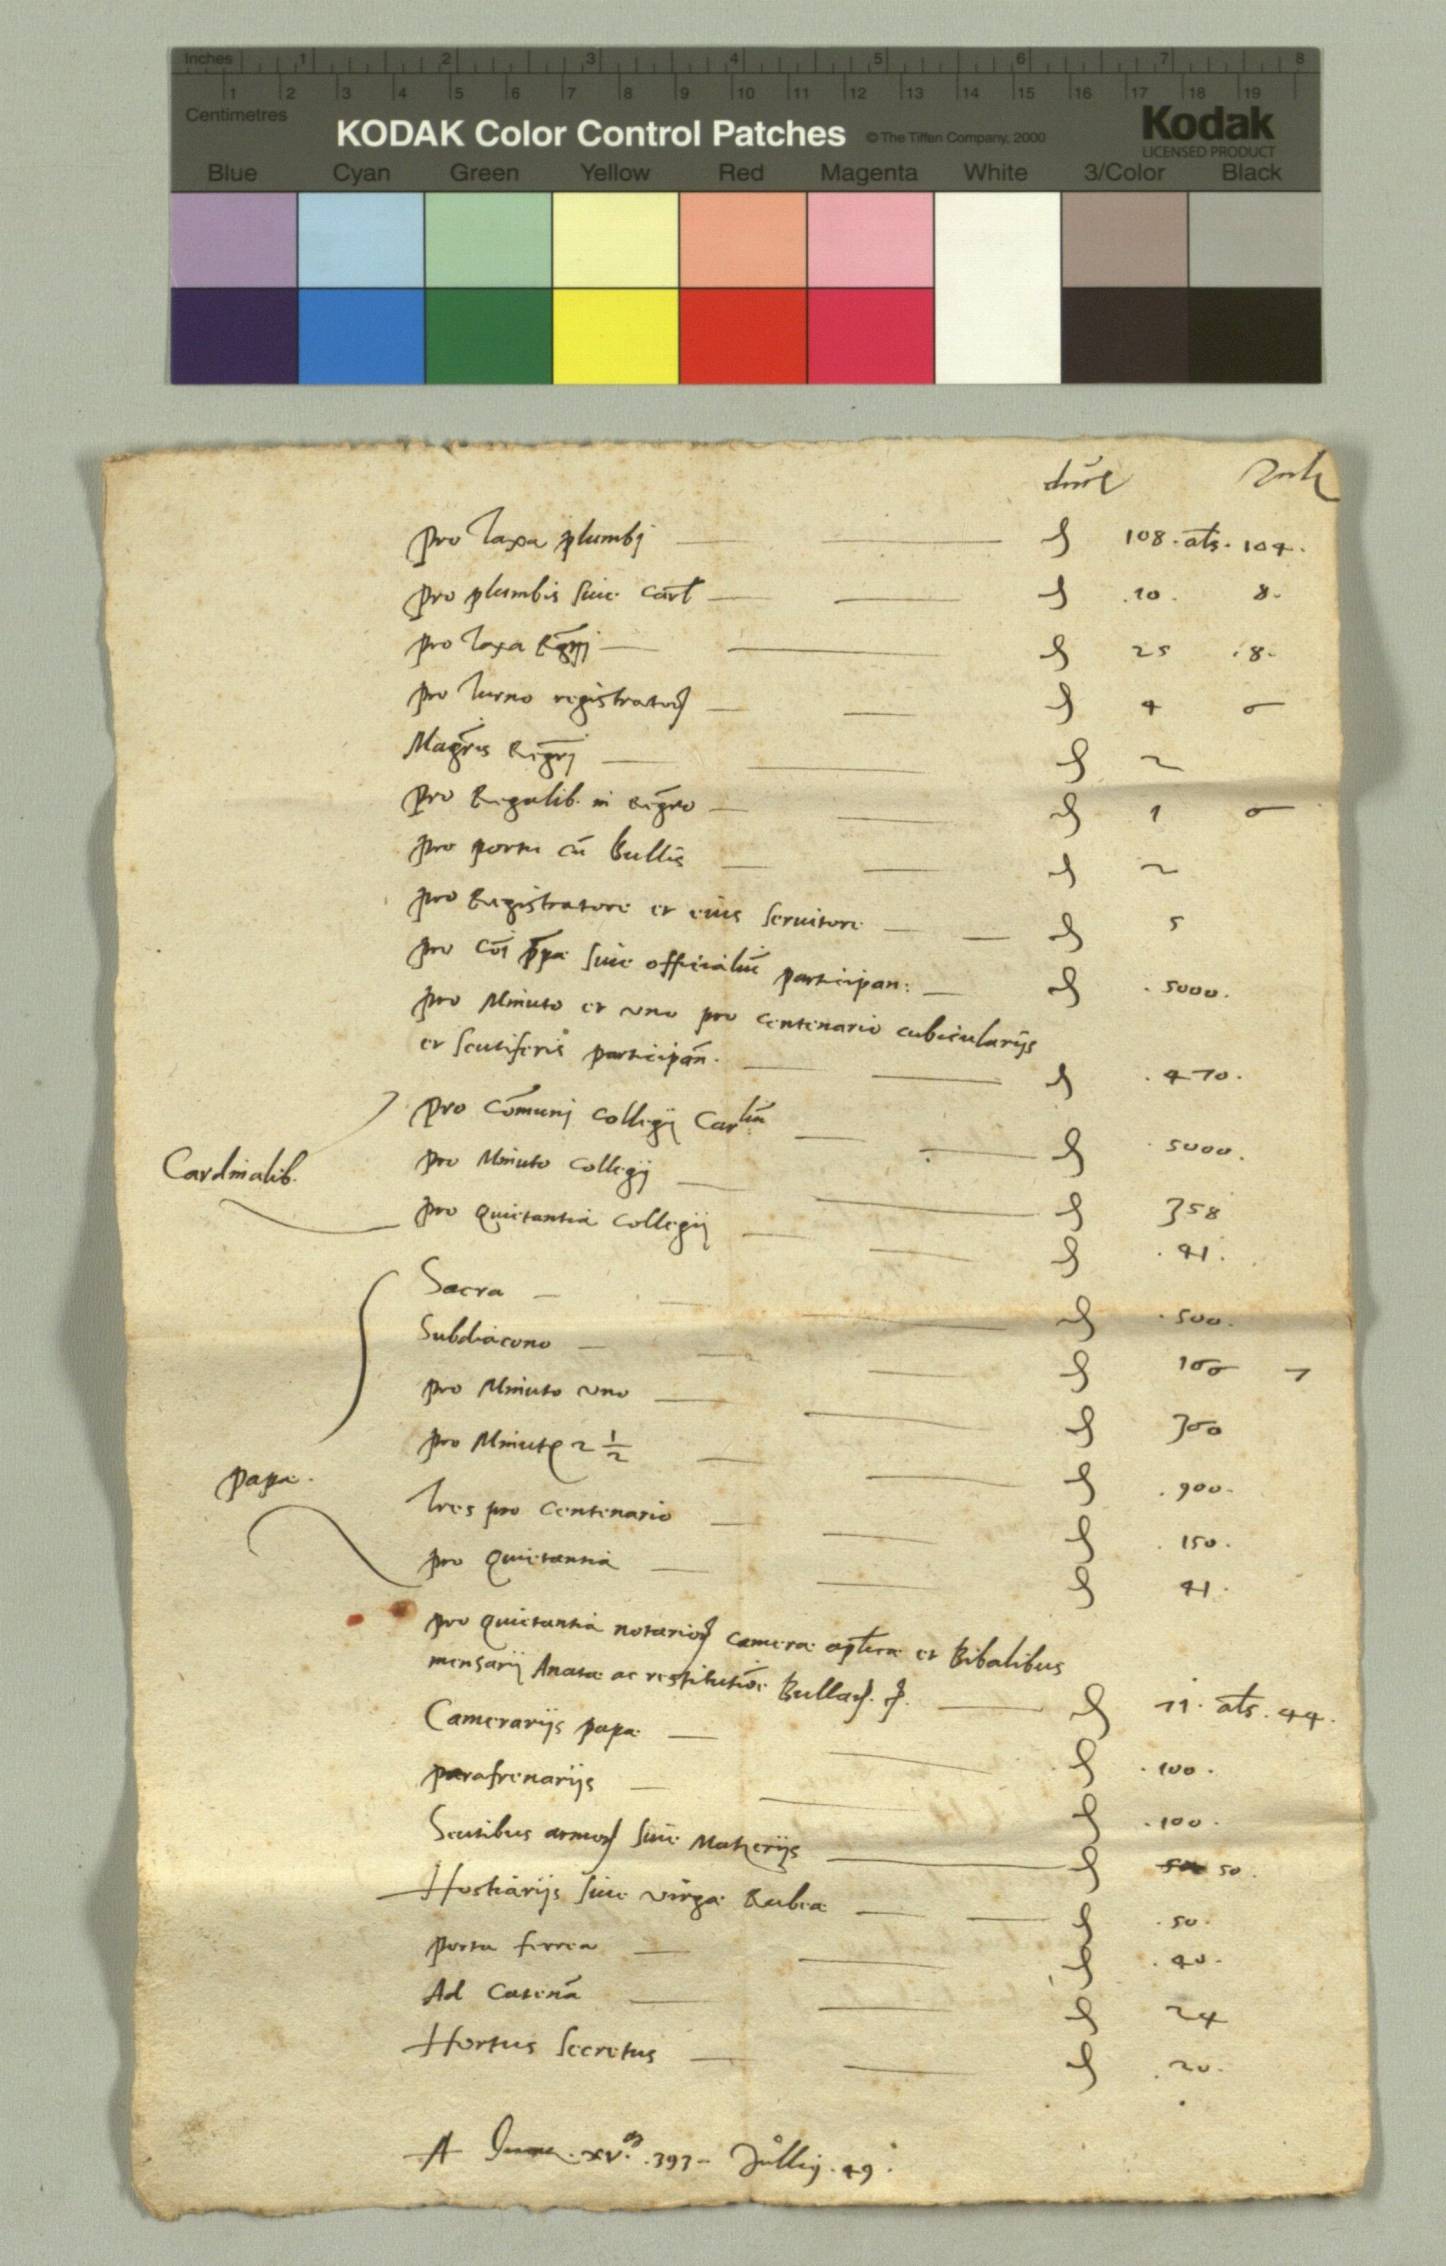 Inches 1 2 3 4 5 6 7 8
1 2 3 4 5 6 7 8 9 10 11 12 13 14 15 16 17 18 19
Centimetres
KODAK Color Control Patches © The Tiffen Company, 2000 Kodak
LICENSED PRODUCT
Blue Cyan Green Yellow Red Magenta White 3/Color Black
pro Taxa plumbj 108. als. 104.
pro plumbis siue carl 10. 8.
pro Taxa Rgrj 25 .8.
pro Turno registrator 4 0
Magris Regrj 2
pro Regalib. in Regro 1 0
pro portu cu Bullis 2
pro Registratore et eius seruitore 5
pro coi ppa siue officialiu participan: . 5000.
pro Minuto et uno pro centenario cubicularijs
et scutiferis participan. . 470.
pro comuni collegij Carliu 5000.
Cardinalib.
pro Minuto collegij 358
pro Quietantia collegij . 41.
Sacra . 500.
Subdiacono 100
pro Minuto uno 300
pro Minut 2 1/2 . 900.
papa.
Tres pro centenario . 150.
pro Quietantia 41.
pro Quietantia notarior camerae aplicae et Bibalibus
mensarij Anatae ac restitutioe Bullar. 11. als. 44.
Camerarijs papae . 100.
parafrenarijs . 100.
Scutibus armor siue Mazerijs 50.
Hostiarijs siue virga Rubea . 50.
porta ferrea . 40.
Ad Catena 24
Hortus secretus . 20.
A xv. . 393 - Jullij . 49.